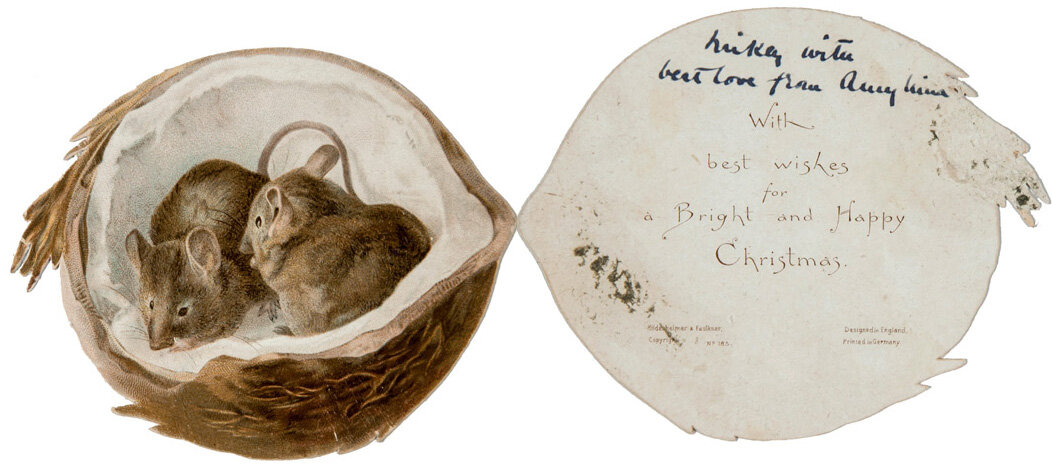 with
best love from Amy
With
best wishes
for
a Bright and Happy
Christmas.
Hildesheimer & Faulkner,
Copyright
No 185.
Designed in England,
Printed in Germany.